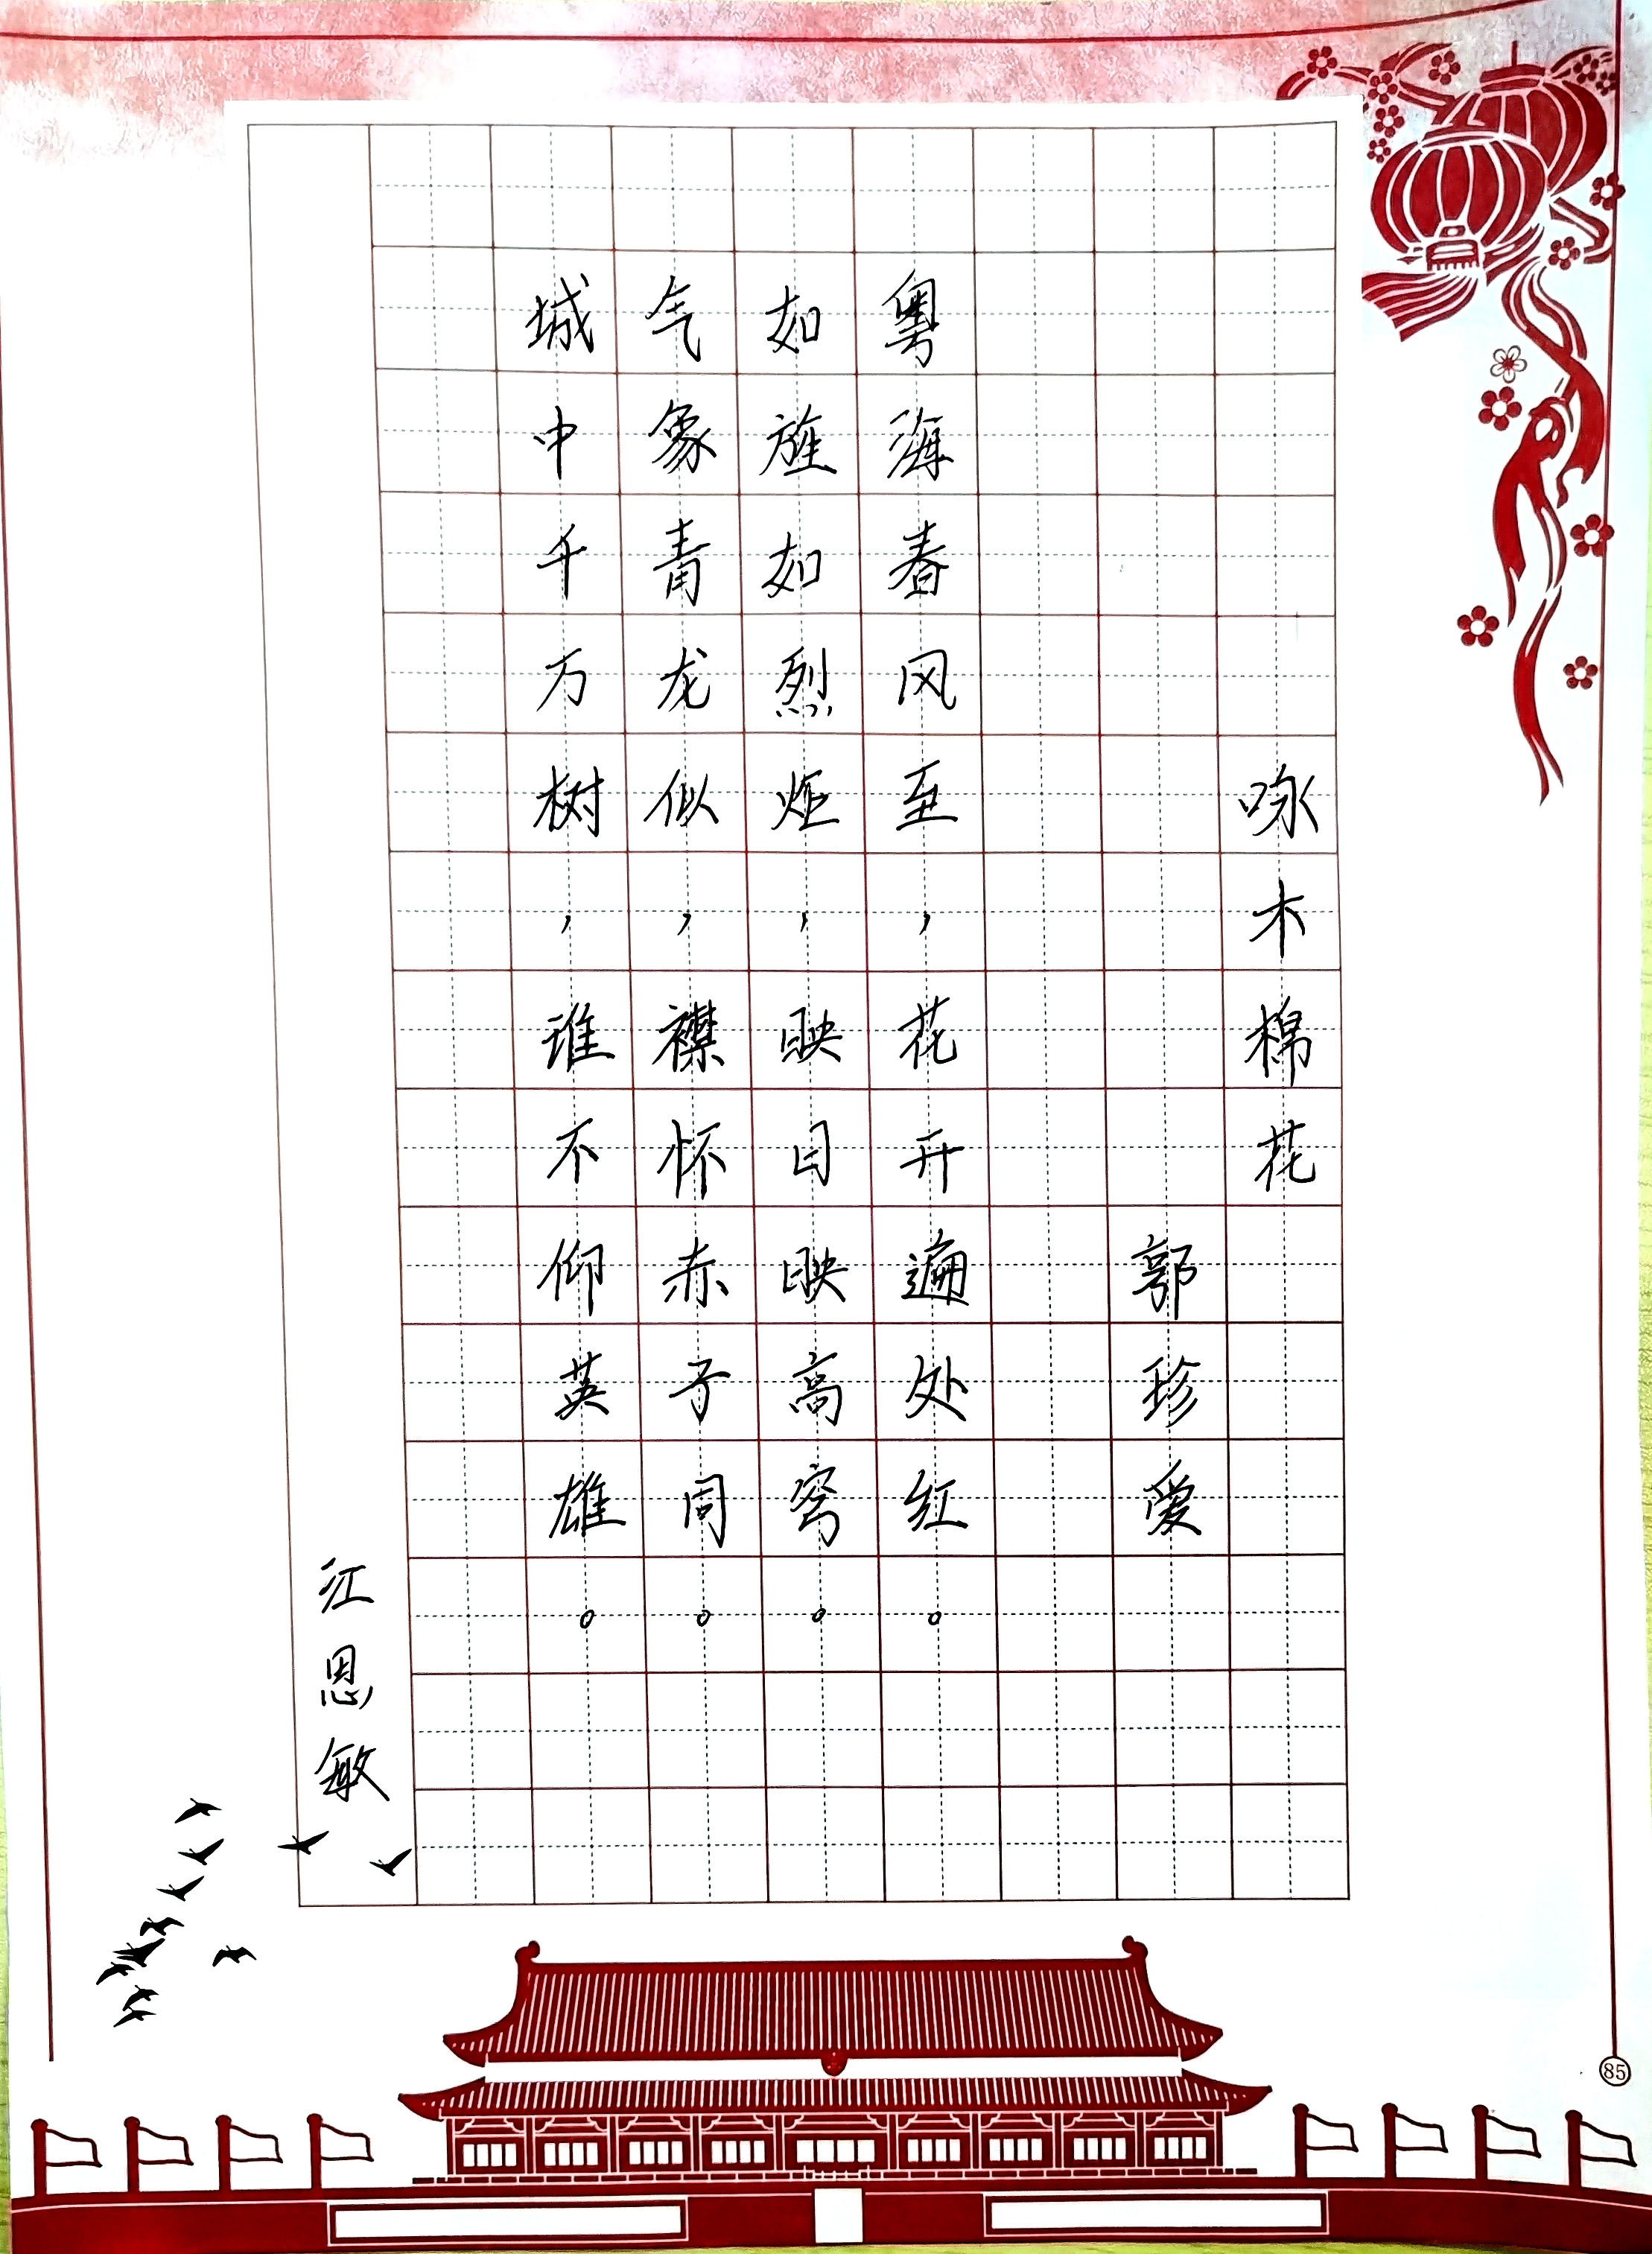 咏木棉花
郭珍爱
粤海春风至，花开遍处红。
如旌如烈炬，映日映高穹。
气象青龙似，襟怀赤子同。
城中千万树，谁不仰英雄。
江恩敏
85